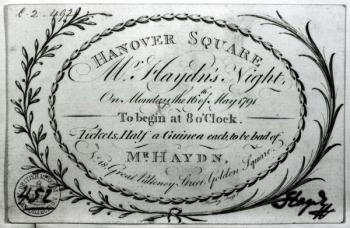 E.2.4921
HANOVER SQUARE.
Mr. Haydn's Night,
On Monday, the 16th of May 1791
To begin at 8 o'Clock.
Tickets, Half a Guinea each, to be had of
Mr. HAYDN,
No. 18 Great Pulteney Street Golden Square.
Haydn